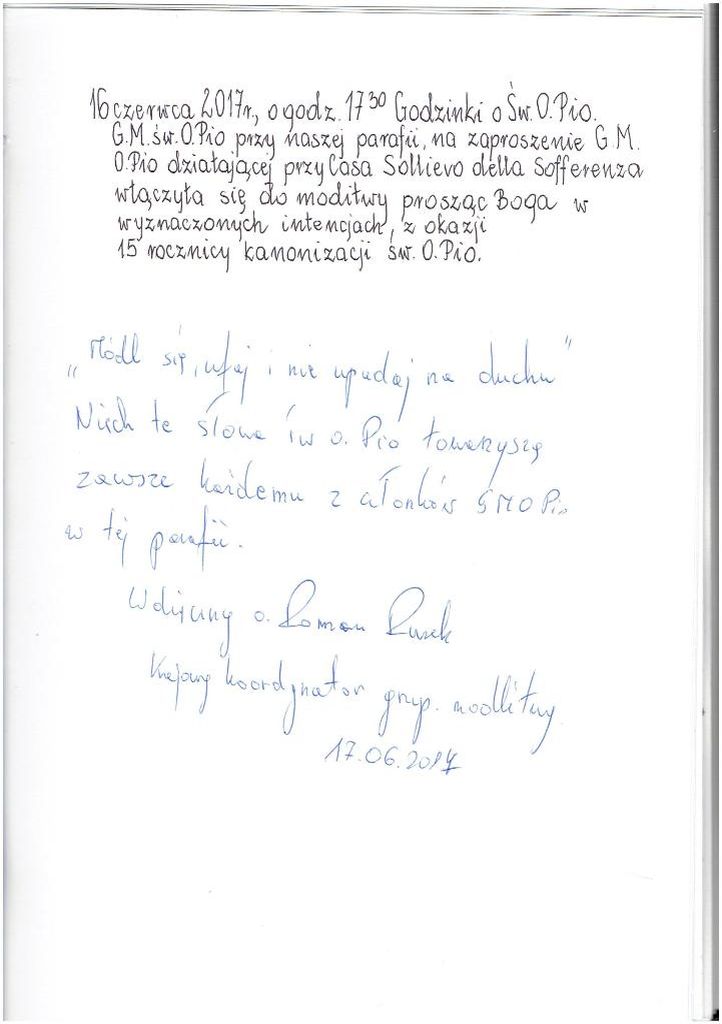 16 czerwca 2017r., o godz. 17³⁰ Godzinki o Św. O. Pio.
G.M. św. O. Pio przy naszej parafii, na zaproszenie G.M.
O. Pio działającej przy Casa Sollievo della Sofferenza
włączyła się do moditwy prosząc Boga w
wyznaczonych intencjach, z okazji
15 rocznicy kanonizacji św. O. Pio.
„Módl się, ufaj i nie upadaj na duchu”
Niech te słowa św o. Pio towarzyszą
zawsze każdemu z członków GMO Pio
w tej parafii.
Wdzięczny o. Roman Rusek
Krajowy koordynator grup. modlitwy
17.06.2017